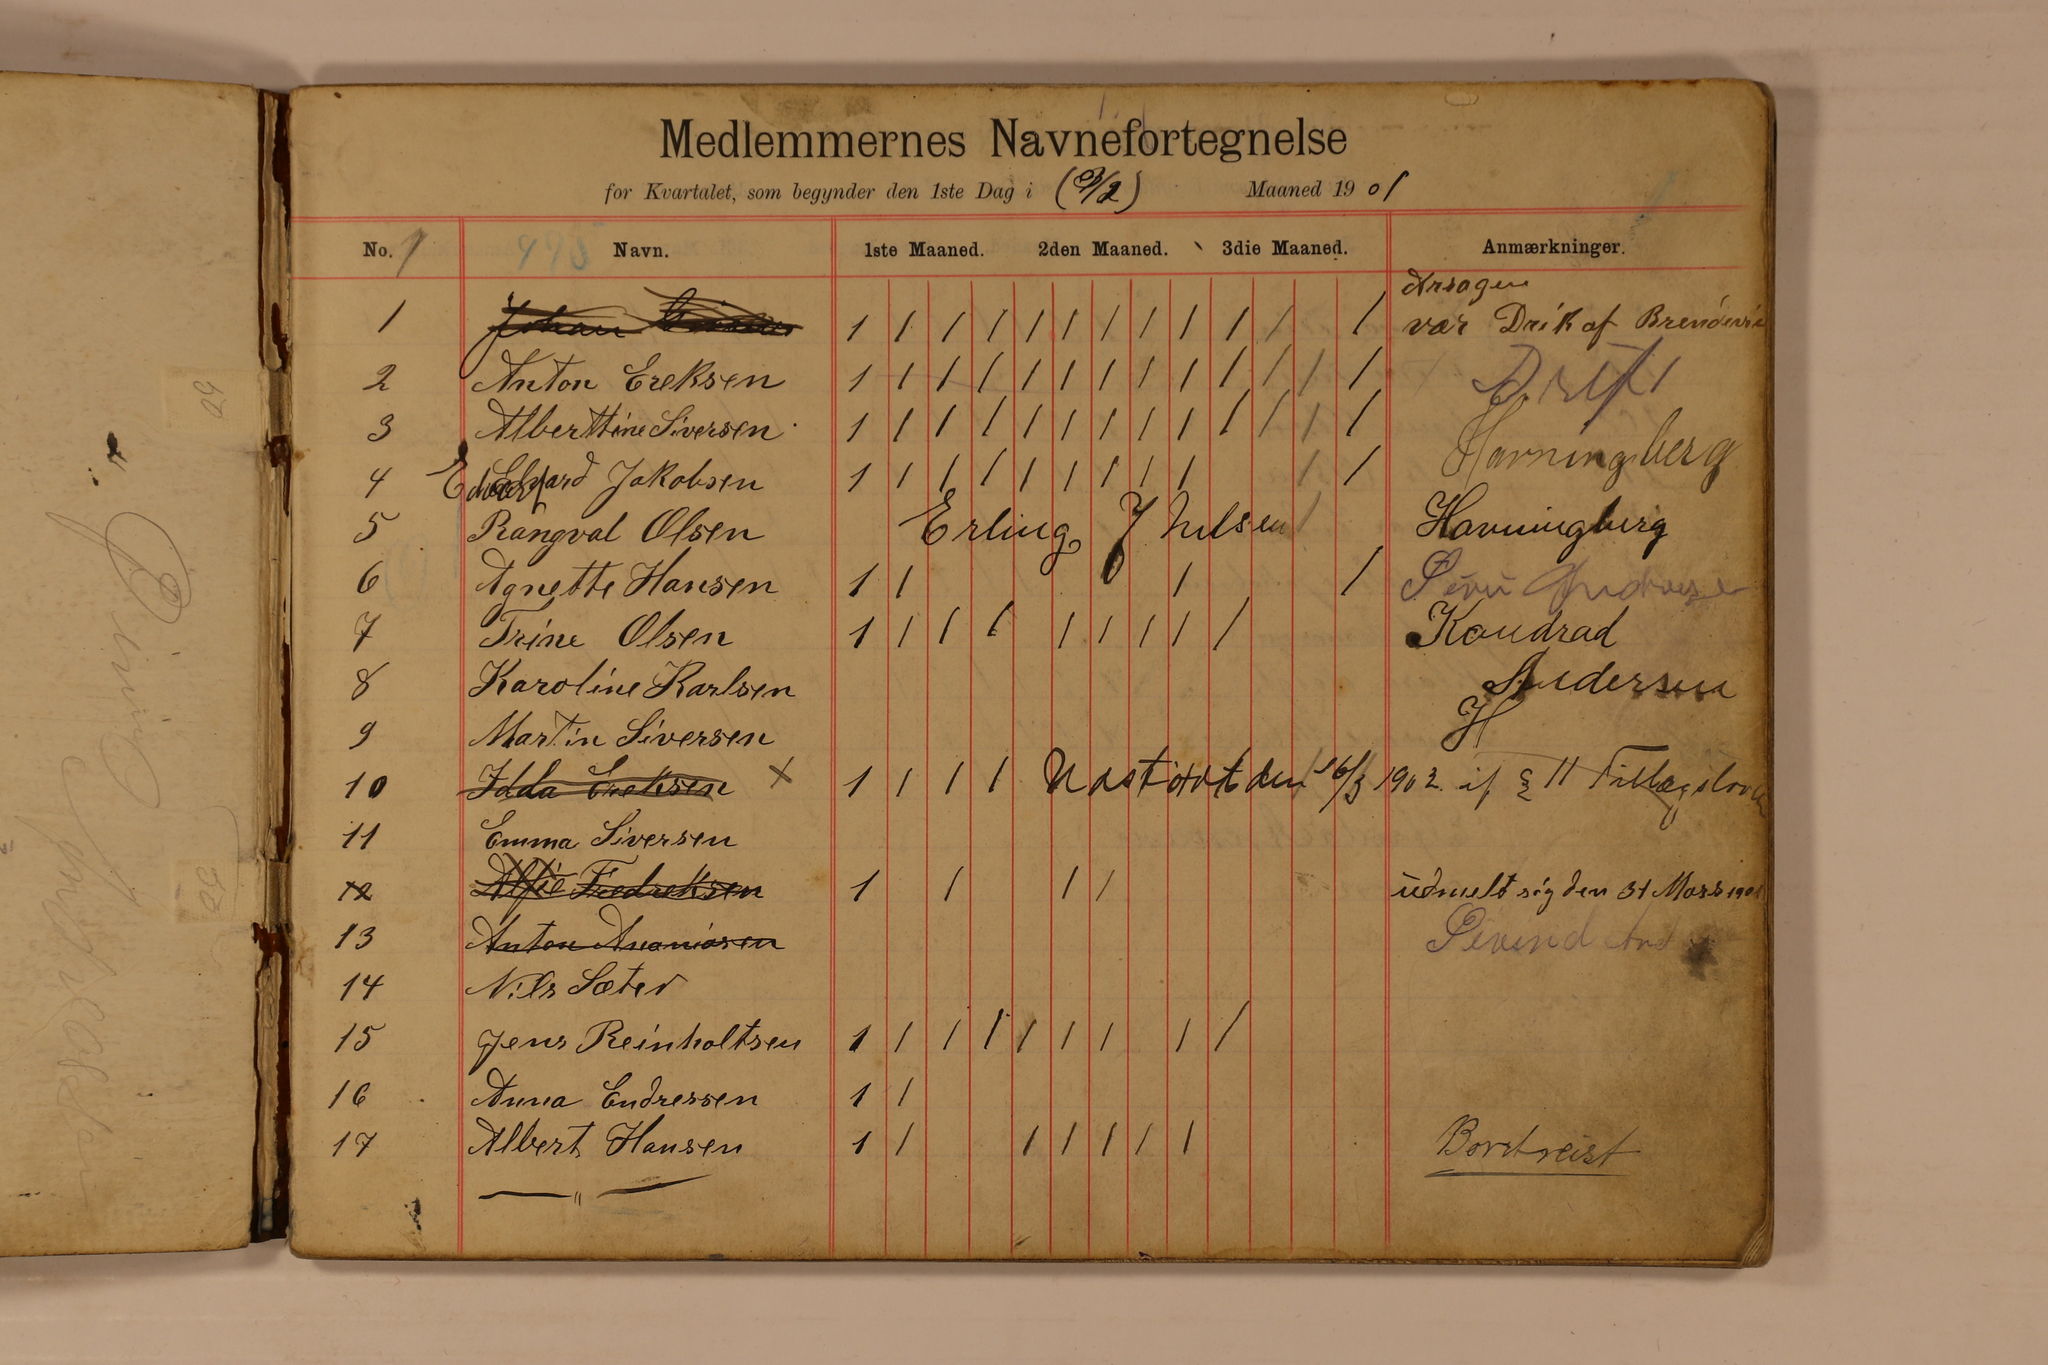 Medlemmernes Navnefortegnelse
for Kvartalet, som begynder den 1ste Dag i (3/2) Maaned 1901
No. 1 Navn. 1ste Maaned. 2den Maaned. 3die Maaned. Anmærkninger.
Arsagen
1 Johan 1 1 1 1 1 1 1 1 1 1 1 1 var Drik af
2 Anton Ereksen 1 1 1 1 1 1 1 1 1 1 1 1 1
3 Alberttine Siversen 1 1 1 1 1 1 1 1 1 1 1 1 1
4 Edvard Jakobsen 1 1 1 1 1 1 1 1 1 1 1 Havningberg
5 Rangval Olsen Erling J Nilsen Havningberg
6 Agnette Hansen 1 1 1 1
7 Trine Olsen 1 1 1 1 1 1 1 1 1 Kondrad
8 Karoline Karlsen Andersen
9 Martin Siversen H
10 Idda Ereksen x 1 1 1 1 den 16/3 1902 if § 11
11 Emma Siversen
12 Fredreksen 1 1 1 1 udmelt sig den 31 Mars 1901
13 Anton Ananiasen Eivind And
14 Nils Sæter
15 Jens Reinholtsen 1 1 1 1 1 1 1 1 1
16 Anna Endressen 1 1
17 Albert Hansen 1 1 1 1 1 1 1 Bortreist